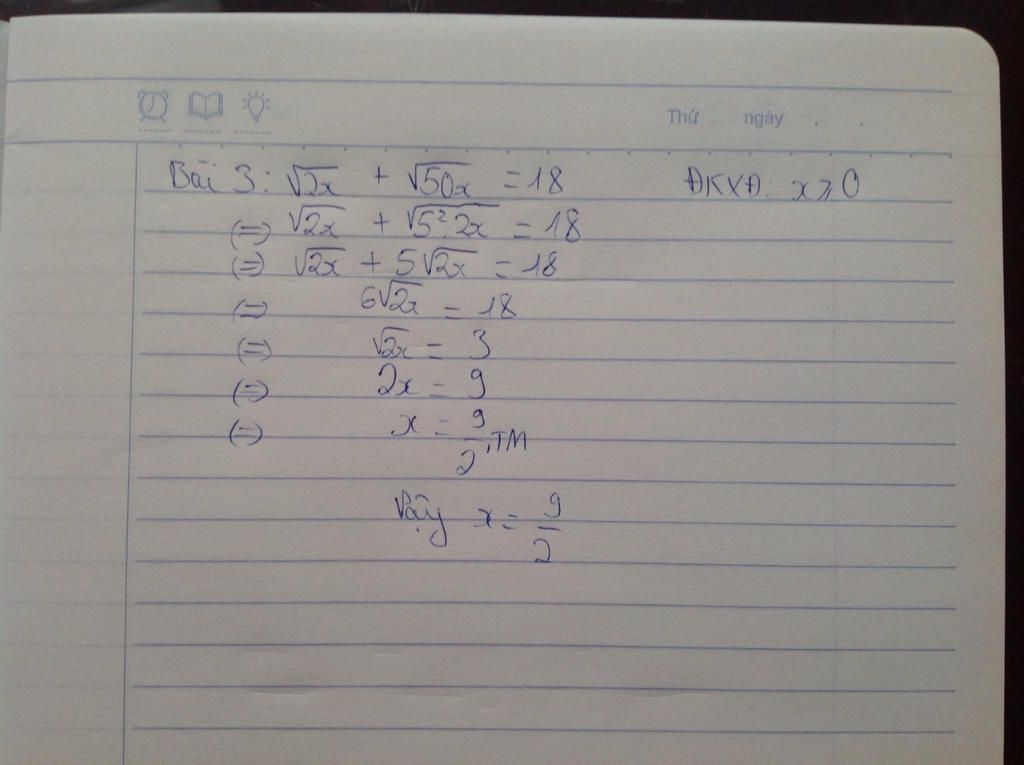 Thứ ngày . .
Bài 3: √2x + √50x = 18 ĐKXĐ: x ⩾ 0
(=) √2x + √5².2x = 18
(=) √2x + 5√2x = 18
(=) 6√2x = 18
(=) √2x = 3
(=) 2x = 9
(=) x = 9/2, TM
Vậy x = 9/2